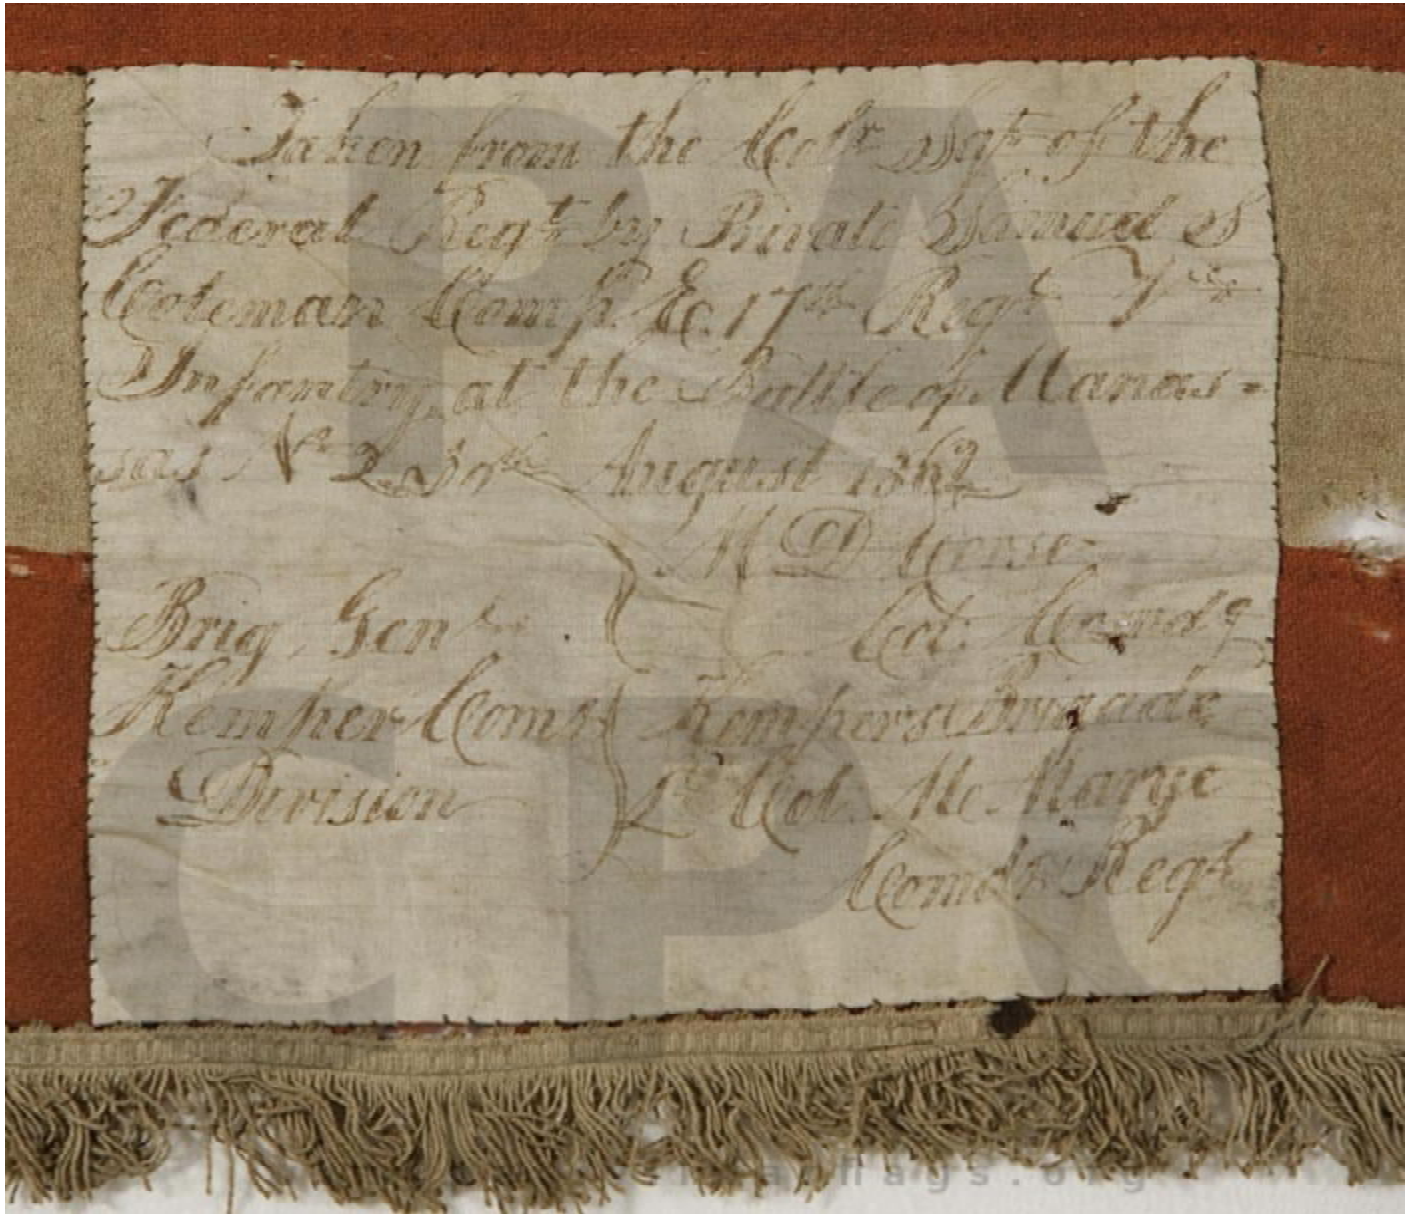 Taken from the Colr Sgt of the
Federal Regt by Private Samuel S
Coleman Comp. E. 17th Regt Va
Infantry, at the Battle of Manas=
sas No 2. 30th August 1862
M D Corse
Brig. Genl Col. Comdg
Kemper Comg Kempers Brigade
Division Lt Col. M. Marye
Comdg Regt
PA
CPC